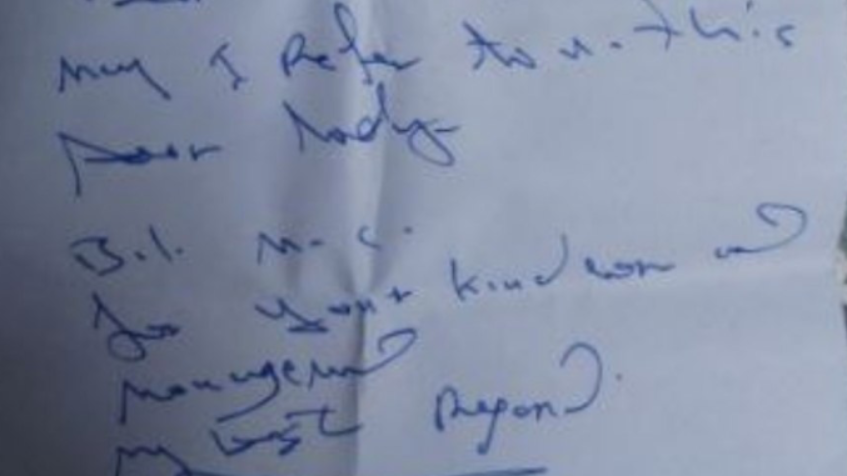 May I Refer to u. this
Poor Lady
B.I. M.C.
for your kind con and
management
my best Regard.